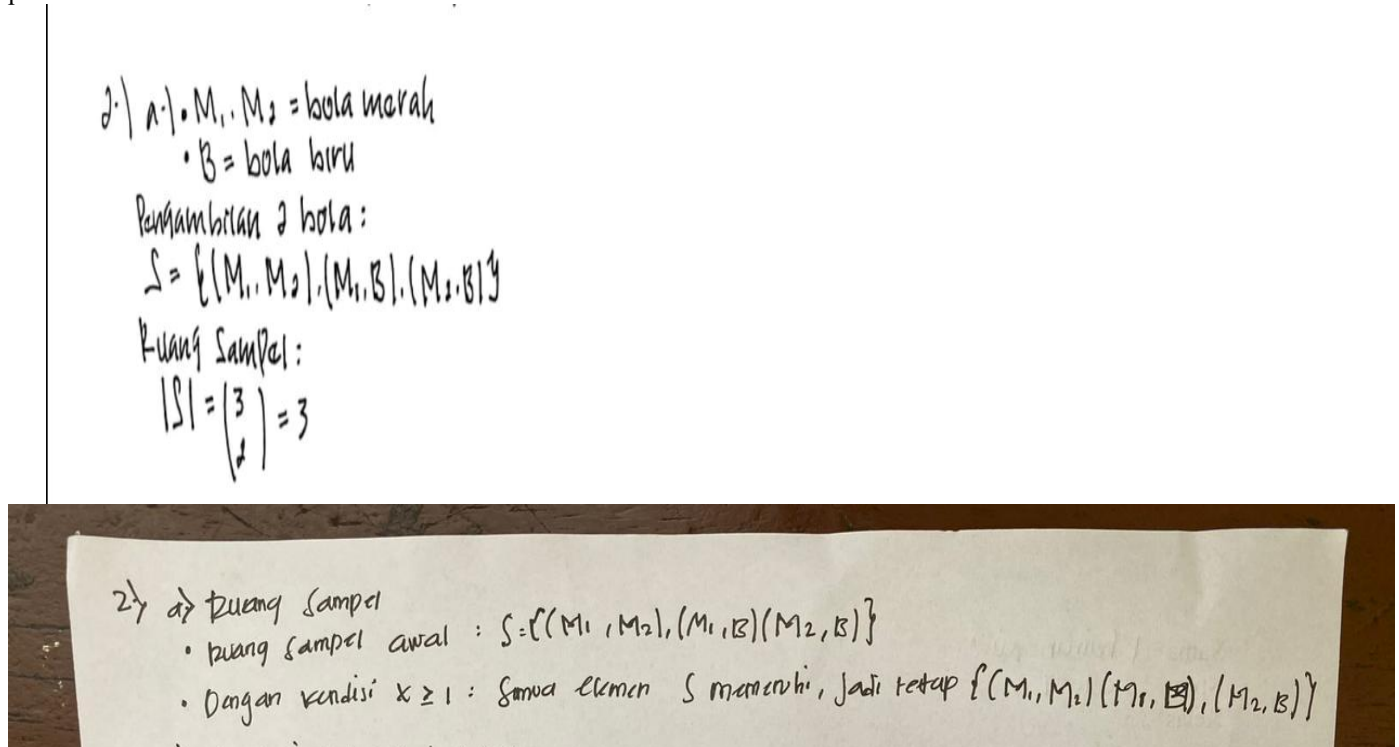 2.) a.) • M₁, M₂ = bola merah
• B = bola biru
Pengambilan 2 bola :
S = {(M₁, M₂), (M₁, B), (M₂, B)}
Ruang Sampel :
|S| = (3 2) = 3
2) a) Ruang Sampel
• Ruang sampel awal : S = {(M1, M2), (M1, B) (M2, B)}
• Dengan kondisi x ≥ 1 : Semua elemen S memenuhi, jadi tetap {(M1, M2) (M1, B), (M2, B)}